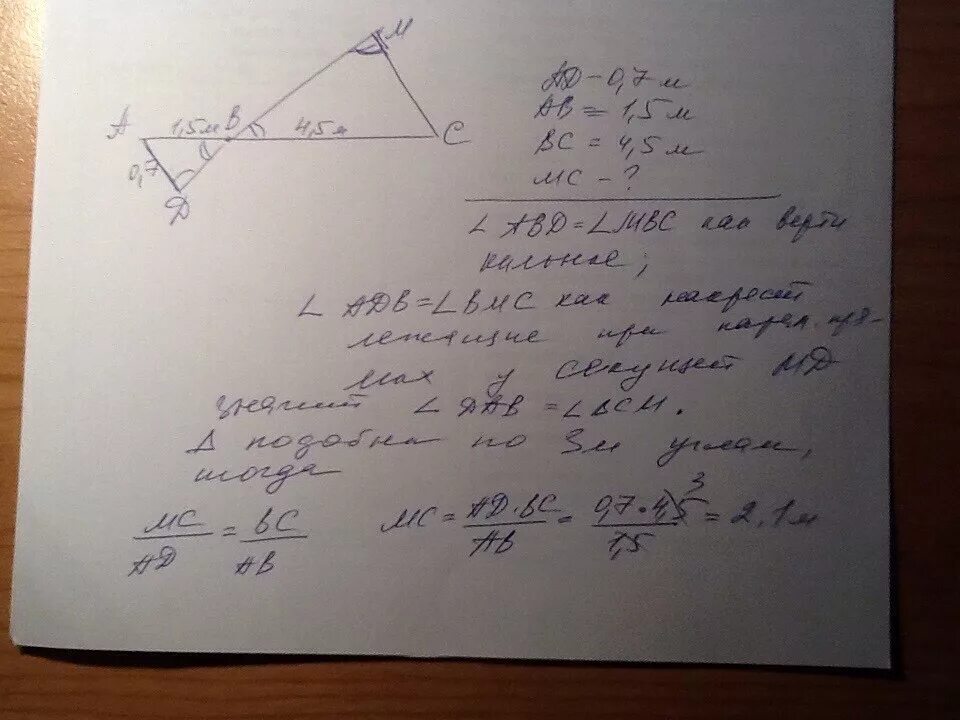 М
А 1,5м В 4,5м С
0,7
Д
AD – 0,7 м
AB = 1,5 м
BC = 4,5 м
MC – ?
∠ ABD = ∠ MBC как верти
кальные;
∠ ADB = ∠ BMC как накрест
лежащие при парал. пря-
мых у секущей MD
значит ∠ DAB = ∠ BCM.
Δ подобны по 3м углам,
тогда
MC/AD = BC/AB MC = AD·BC/AB = 0,7·4,5/1,5 3 = 2,1 м